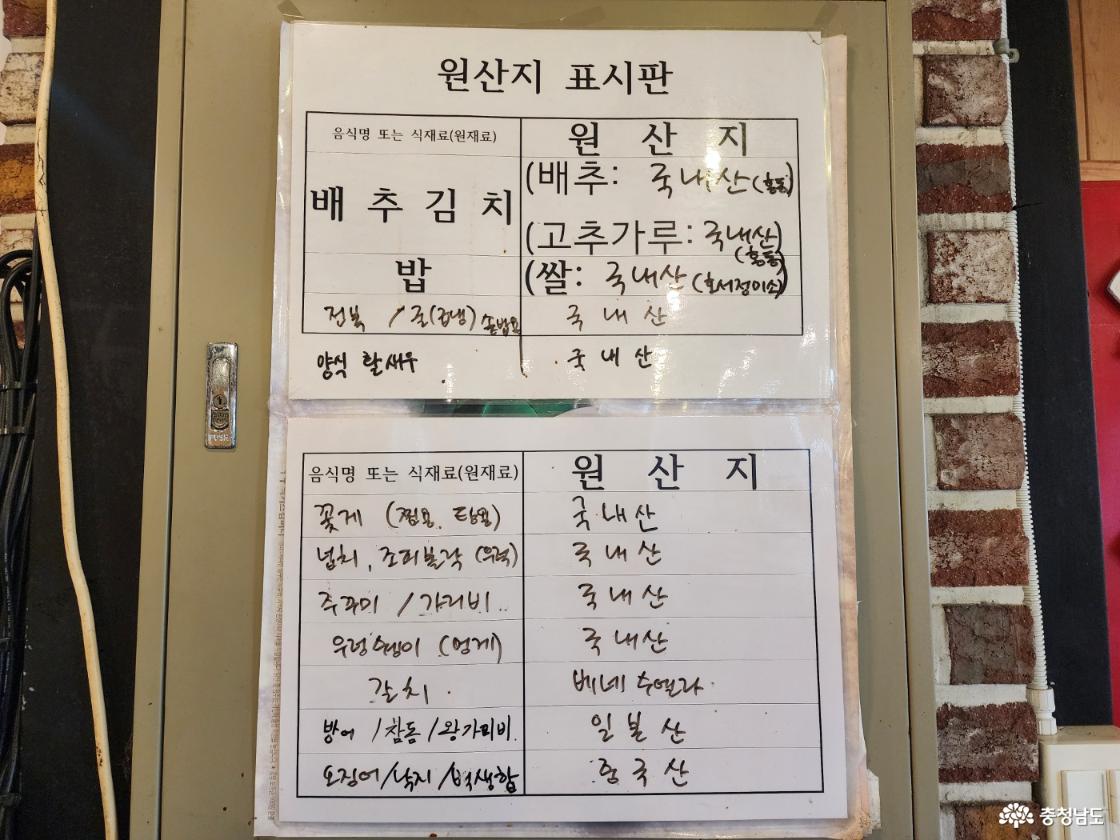 원산지 표시판
음식명 또는 식재료(원재료) 원 산 지
배추김치 (배추: 국내산(홍동)
(고추가루: 국내산)
(홍동)
밥 (쌀: 국내산 (호서정미소)
전복 / 굴(검냉) 솥밥용 국내산
양식 활새우 국내산
음식명 또는 식재료(원재료) 원 산 지
꽃게 (찜용, 탕용) 국내산
넙치, 조피볼락 (우럭) 국내산
주꾸미 / 가리비 국내산
우렁쉥이 (멍게) 국내산
갈치 베네수엘라
방어 / 참돔 / 왕가리비 일본산
오징어/낙지/백생합 중국산
충청남도